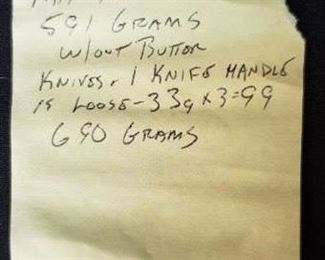 591 GRAMS
W/OUT BUTTER
KNIVES. 1 KNIFE HANDLE
IS LOOSE - 33g x 3 = 99
690 GRAMS